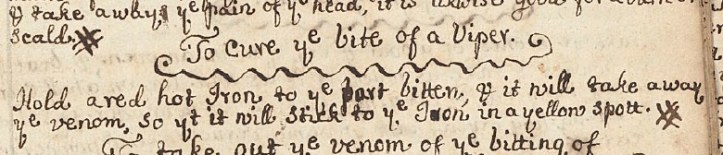 & take away ye pain of ye head, it is likwise good for a burn or
scald.
To Cure ye bite of a Viper.
Hold a red hot Iron to ye part bitten, & it will take away
ye venom, so yt it will stick to ye Iron in a yellow spott.
To take out ye venom of ye bitting of